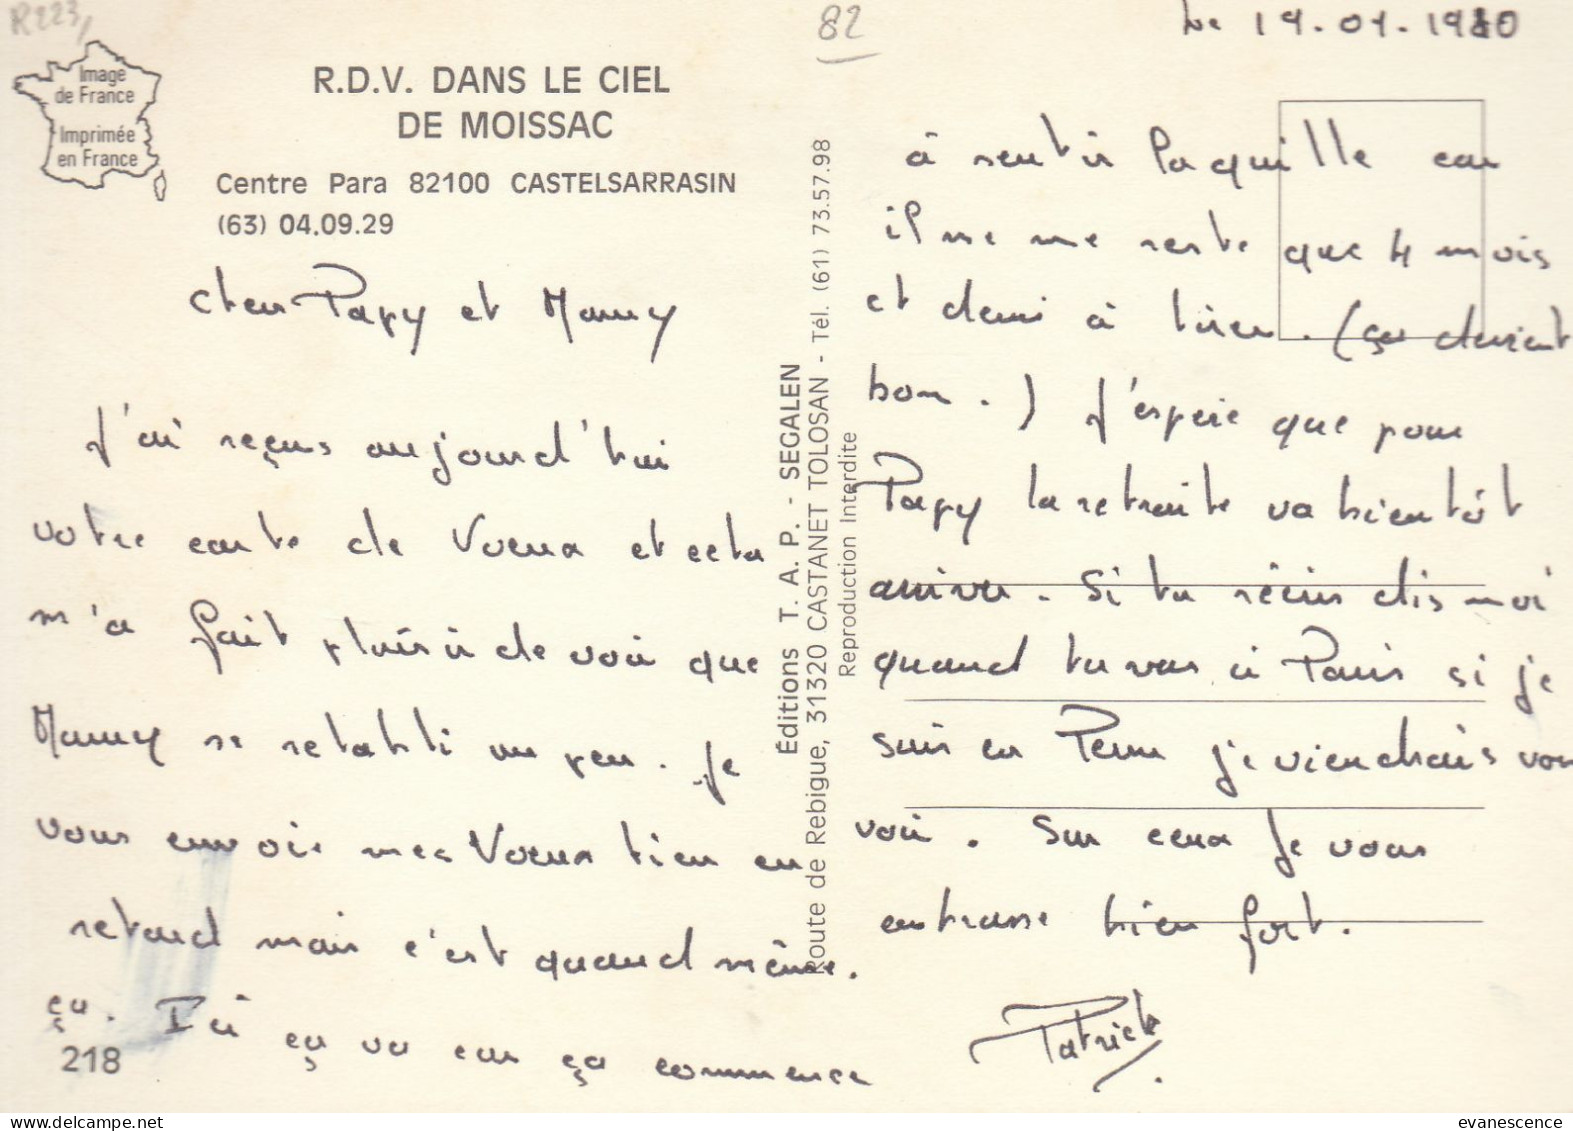 R223,
82
Le 19.01.1980
Image
de France
Imprimée
en France
R.D.V. DANS LE CIEL
DE MOISSAC
Centre Para 82100 CASTELSARRASIN
(63) 04.09.29
Cher Papy et Mamy
J'ai reçus aujourd'hui
votre carte de Voeux et cela
m'a fait plaisir de voir que
Mamy se retabli un peu. Je
vous envoie mes Voeux bien en
retard mais c'est quand même.
ça. Ici ça va car ça commence
218
Éditions T. A. P. - SEGALEN
Route de Rebigue, 31320 CASTANET TOLOSAN - Tél. (61) 73.57.98
Reproduction Interdite
à sentir la quille car
il ne me reste que 4 mois
et demi à tirer. (ça devient
bon.) J'espère que pour
Papy la retraite va bientôt
arriver. Si tu écris dis moi
quand tu vas à Paris si je
suis en Perm je viendrais vous
voir. Sur ceux Je vous
embrasse bien fort.
Patrick
evanescence